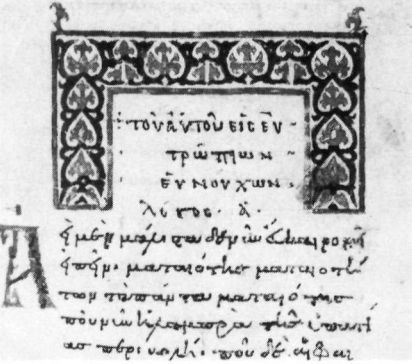 ΤΟΥ ΑΥΤΟΥ ΕΙΣ ΕΥ-
ΤΡΩΠΙΩΝ
ΕΥΝΟΥΧΩΝ
ΛΟΓΟΣ · Α ·
Ἀεὶ μὲν μάλιστα δὲ νῦν εὔκαιρον
εἰπεῖν· ματαιότης ματαιοτή
των τὰ πάντα ματαιότης
ποῦ νῦν ἡ λαμπρὰ τῆς ὑπατεί
ας περιβολή· ποῦ δὲ αἱ φαι